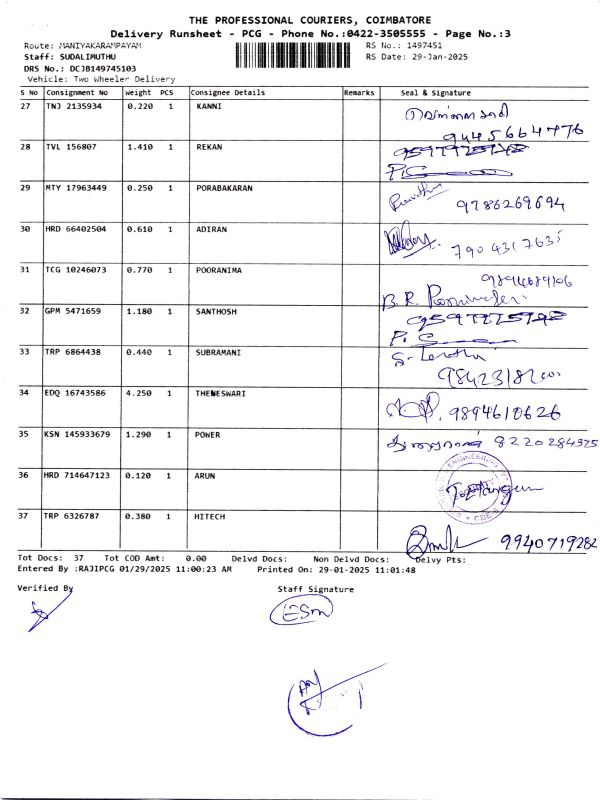 THE PROFESSIONAL COURIERS, COIMBATORE
Delivery Runsheet - PCG - Phone No.:0422-3505555 - Page No.:3
Route: MANIYAKARAMPAYAM RS No.: 1497451
Staff: SUDALIMUTHU RS Date: 29-Jan-2025
DRS No.: DCJB149745103
Vehicle: Two Wheeler Delivery
S No Consignment No Weight PCS Consignee Details Remarks Seal & Signature
27 TNJ 2135934 0.220 1 KANNI
9445664776
28 TVL 156807 1.410 1 REKAN
29 MTY 17963449 0.250 1 PORABAKARAN
9786269694
30 HRD 66402504 0.610 1 ADIRAN
7904317635
31 TCG 10246073 0.770 1 POORANIMA
B.R.
32 GPM 5471659 1.180 1 SANTHOSH
33 TRP 6864438 0.440 1 SUBRAMANI
34 EDQ 16743586 4.250 1 THENESWARI
9894610626
35 KSN 145933679 1.290 1 POWER
8220284325
36 HRD 714647123 0.120 1 ARUN
37 TRP 6326787 0.380 1 HITECH
9940719282
Tot Docs: 37 Tot COD Amt: 0.00 Delvd Docs: Non Delvd Docs: Delvy Pts:
Entered By :RAJIPCG 01/29/2025 11:00:23 AM Printed On: 29-01-2025 11:01:48
Verified By Staff Signature
ESM